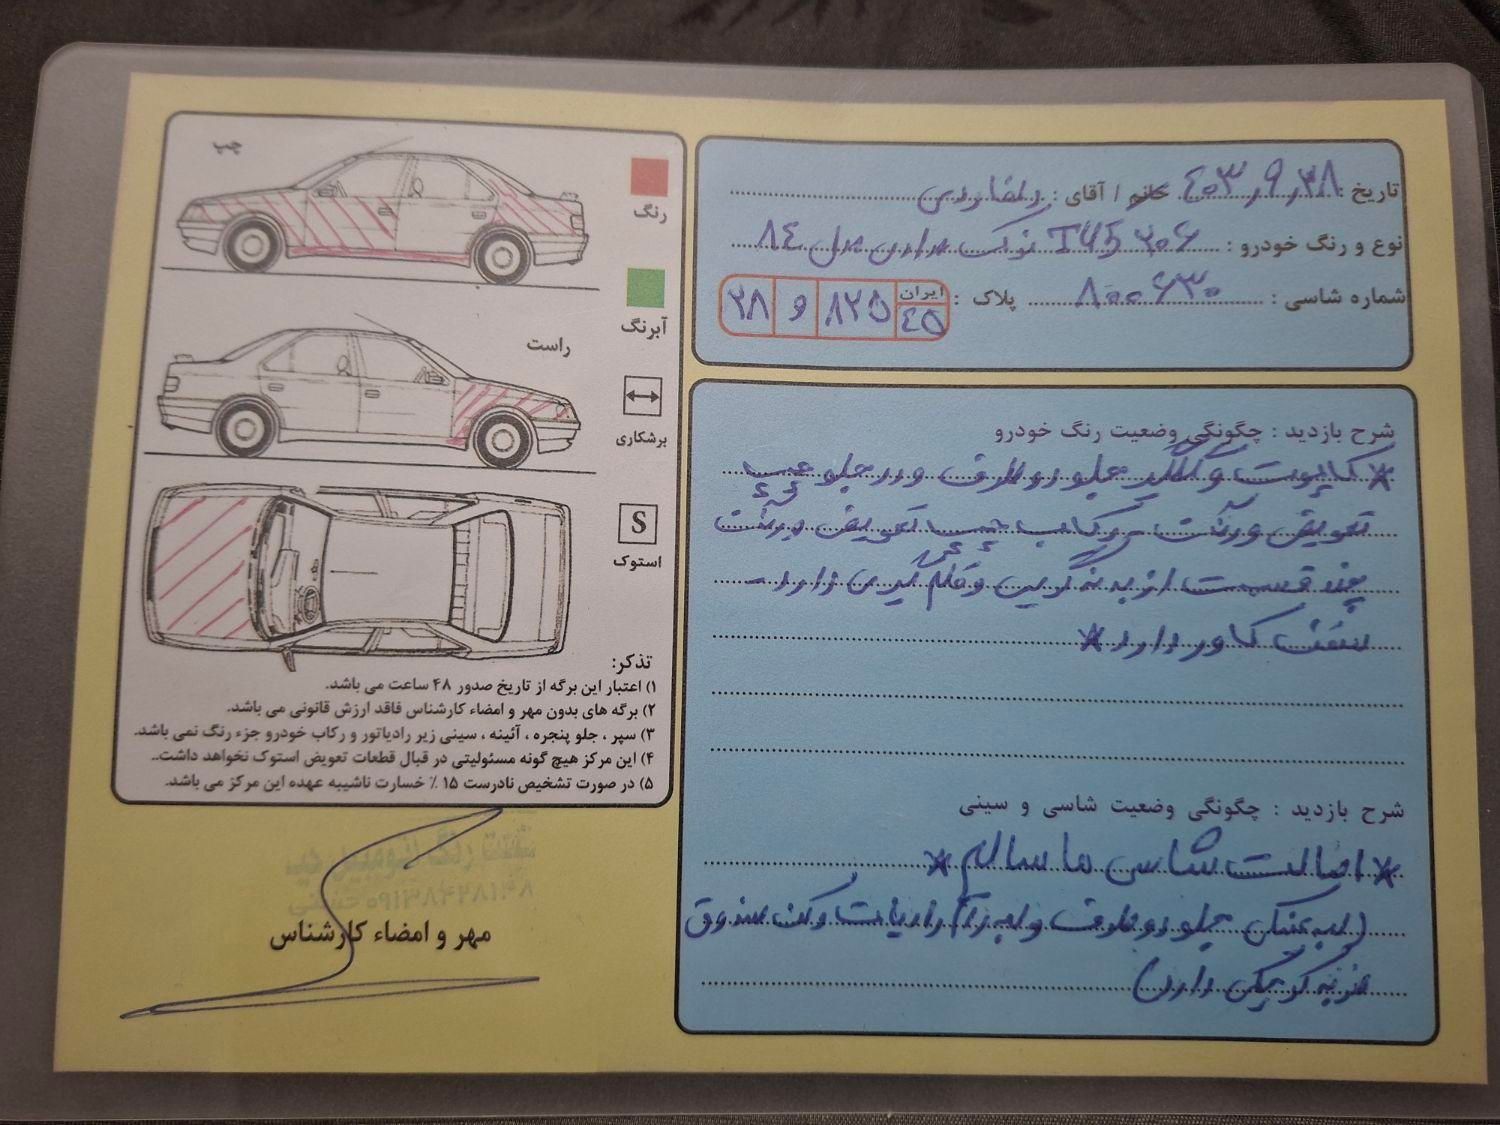 تاریخ : ۴۰۳٫۹٫۲۸ خانم / آقای :
نوع و رنگ خودرو : ۲۰۶ TU5 نوک مدادی مدل ۸۴
شماره شاسی : ۸۰۰۶۳۰ پلاک : ایران ۴۵ ۸۲۵ و ۲۸
شرح بازدید : چگونگی وضعیت رنگ خودرو
* کاپوت و گلگیر جلو دو طرف و در جلو چپ
تعویض و رنگ رکاب چپ تعویض و رنگ
چند قسمت از بدنه و قلم گیری دارد
سقف کاور دارد *
شرح بازدید : چگونگی وضعیت شاسی و سینی
* اصالت شاسی ها سالم *
(لب جلو دو طرف و رادیات و کف صندوق
ضربه کوچیکی دارن)
چپ
رنگ
آبرنگ
راست
برشکاری
S
استوک
تذکر:
۱) اعتبار این برگه از تاریخ صدور ۴۸ ساعت می باشد.
۲) برگه های بدون مهر و امضاء کارشناس فاقد ارزش قانونی می باشد.
۳) سپر ، جلو پنجره ، آئینه ، سینی زیر رادیاتور و رکاب خودرو جزء رنگ نمی باشد.
۴) این مرکز هیچ گونه مسئولیتی در قبال قطعات تعویض استوک نخواهد داشت..
۵) در صورت تشخیص نادرست ۱۵ ٪ خسارت ناشیبه عهده این مرکز می باشد.
مهر و امضاء کارشناس